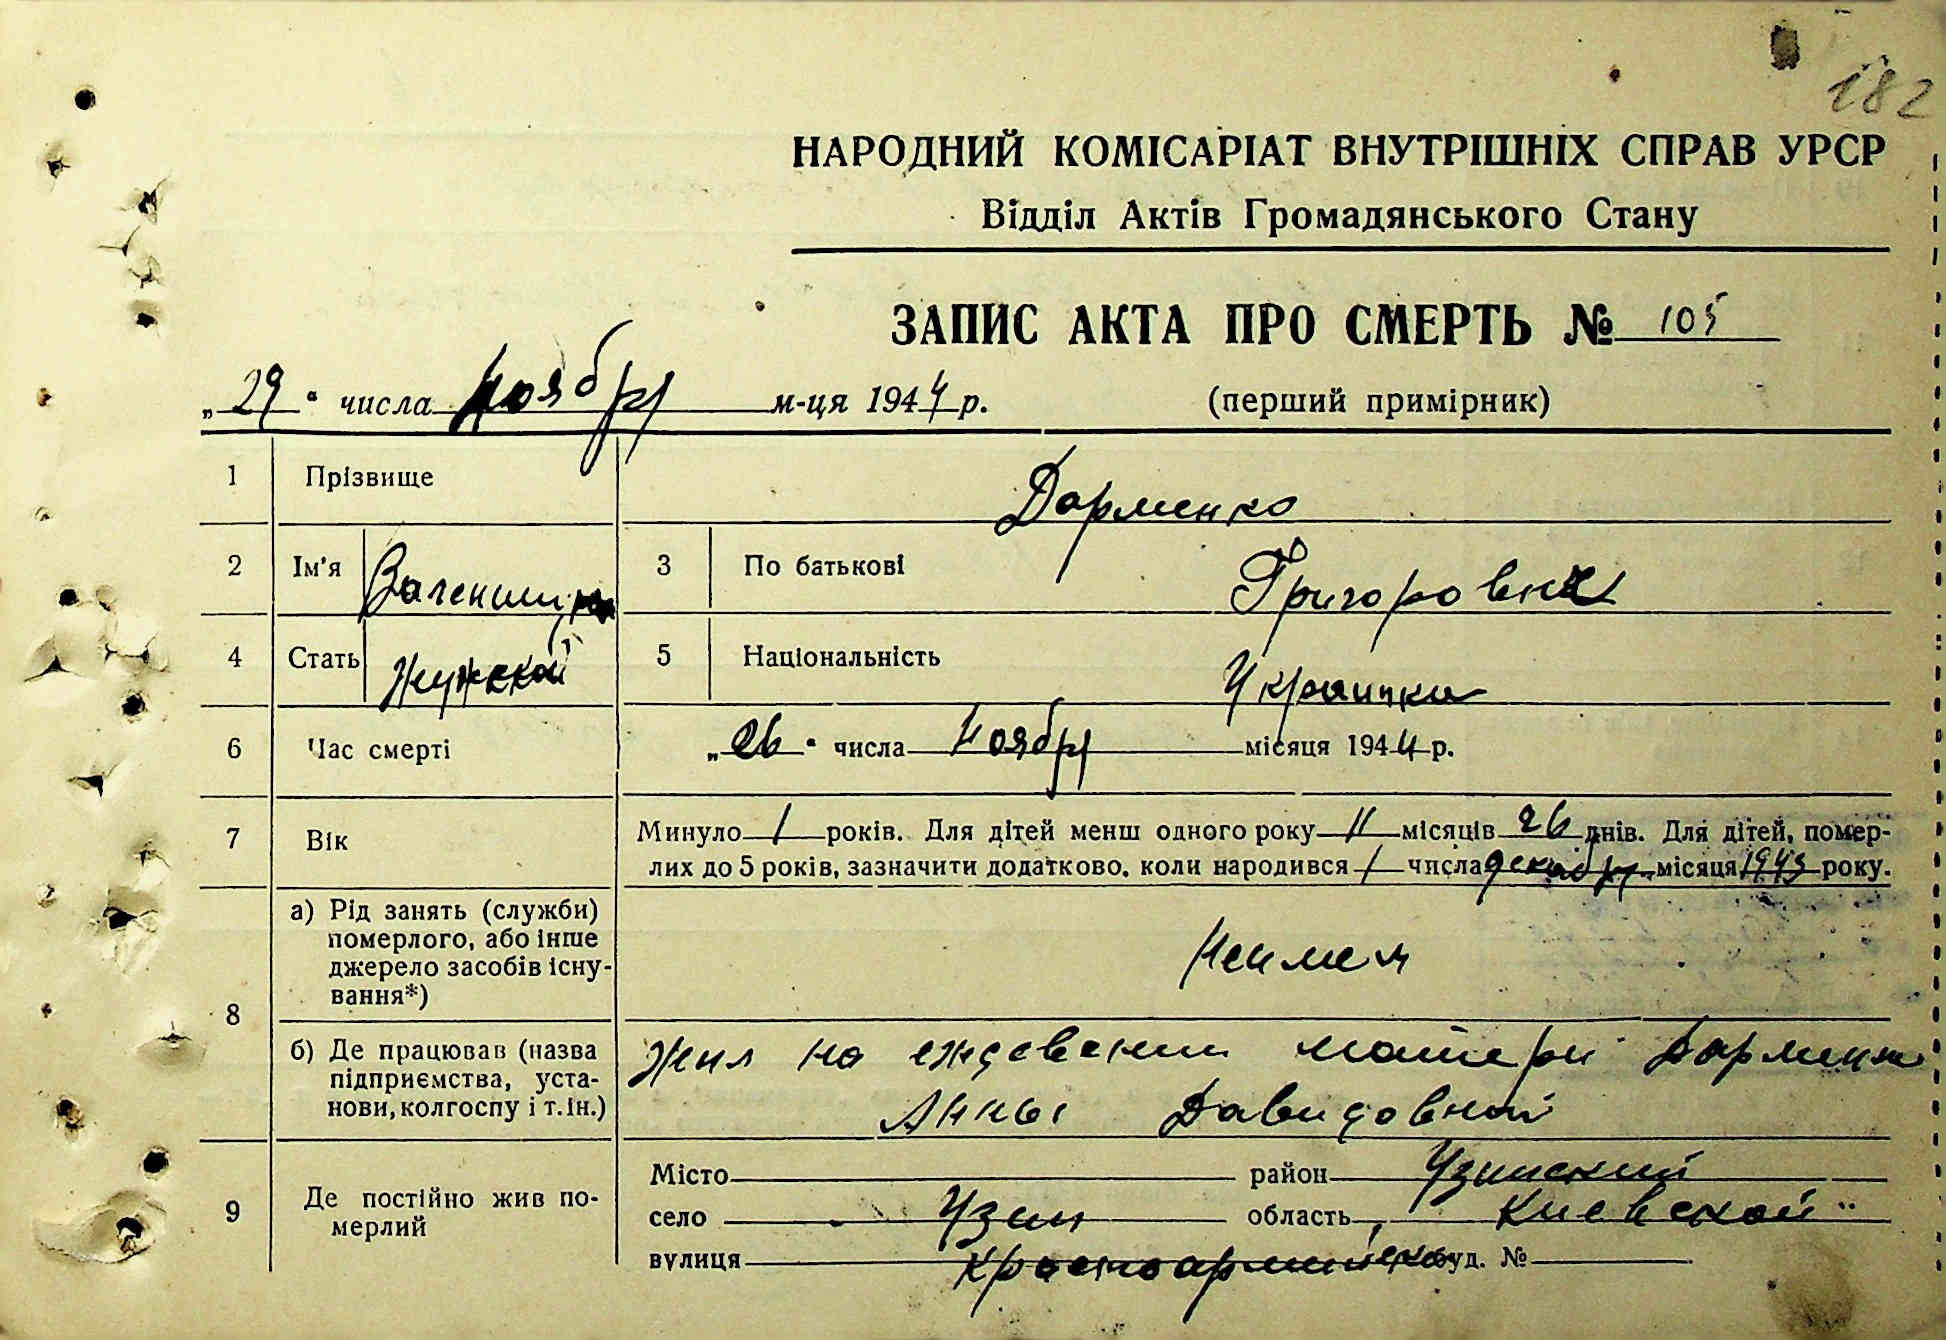 182
НАРОДНИЙ КОМІСАРІАТ ВНУТРІШНІХ СПРАВ УРСР
Відділ Актів Громадянського Стану
ЗАПИС АКТА ПРО СМЕРТЬ № 105
„29“ числа ноября м-ця 1944 р. (перший примірник)
1 Прізвище Дарменко
2 Ім'я 3 По батькові
4 Стать Мужской 5 Національність Украинка
6 Час смерті „26“ числа ноября місяця 1944 р.
7 Вік Минуло 1 років. Для дітей менш одного року 11 місяців 26 днів. Для дітей, помер-
лих до 5 років, зазначити додатково, коли народився 1 числа декабря місяця 1943 року.
8 а) Рід занять (служби)
померлого, або інше
джерело засобів існу-
вання*)
б) Де працював (назва Жил на иждевении матери Дарменко
підприємства, уста-
нови, колгоспу і т. ін.) Анны Давидовной
9 Де постійно жив по-
мерлий
Місто район Узинский
село Узин область Киевской
вулиця Красноармейская буд. №